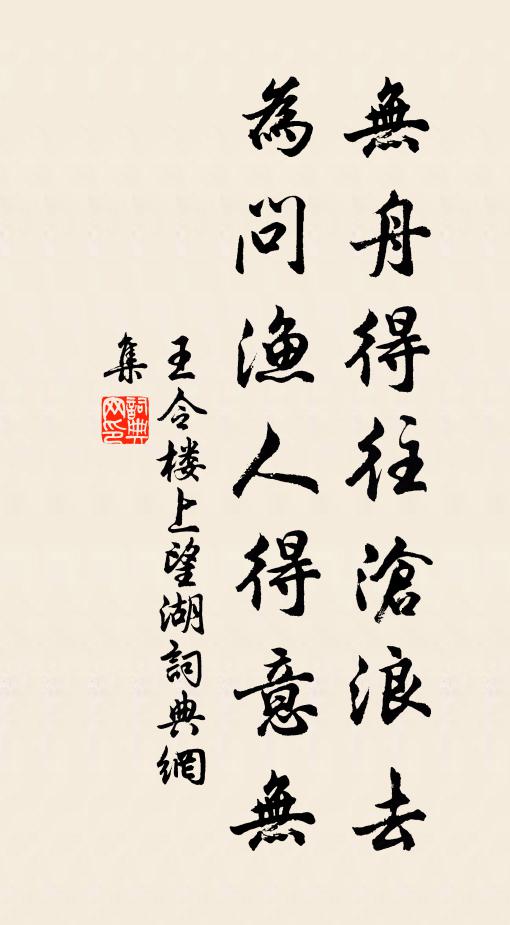 無舟得往滄浪去
為問漁人得意無
王令楼上望湖詞典網
集
詞典
网印